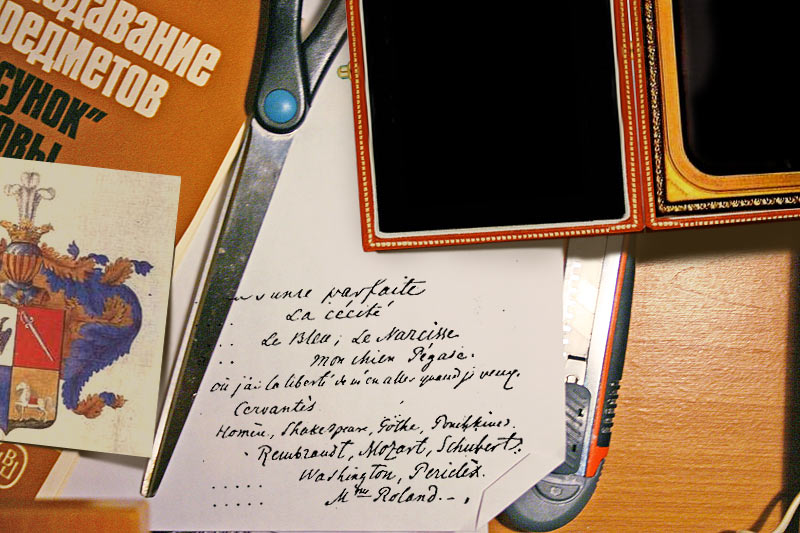 подавание
редметов
сунок"
овы
parfaite
La cécité
Le Bleu; Le Narcisse
Mon chien Pégase.
où j'ai la liberté de m'en aller quand je veux.
Cervantès
Homère, Shakespeare, Göthe,
Rembrandt, Mozart, Schubert.
Washington, Periclès.
Mme Roland.